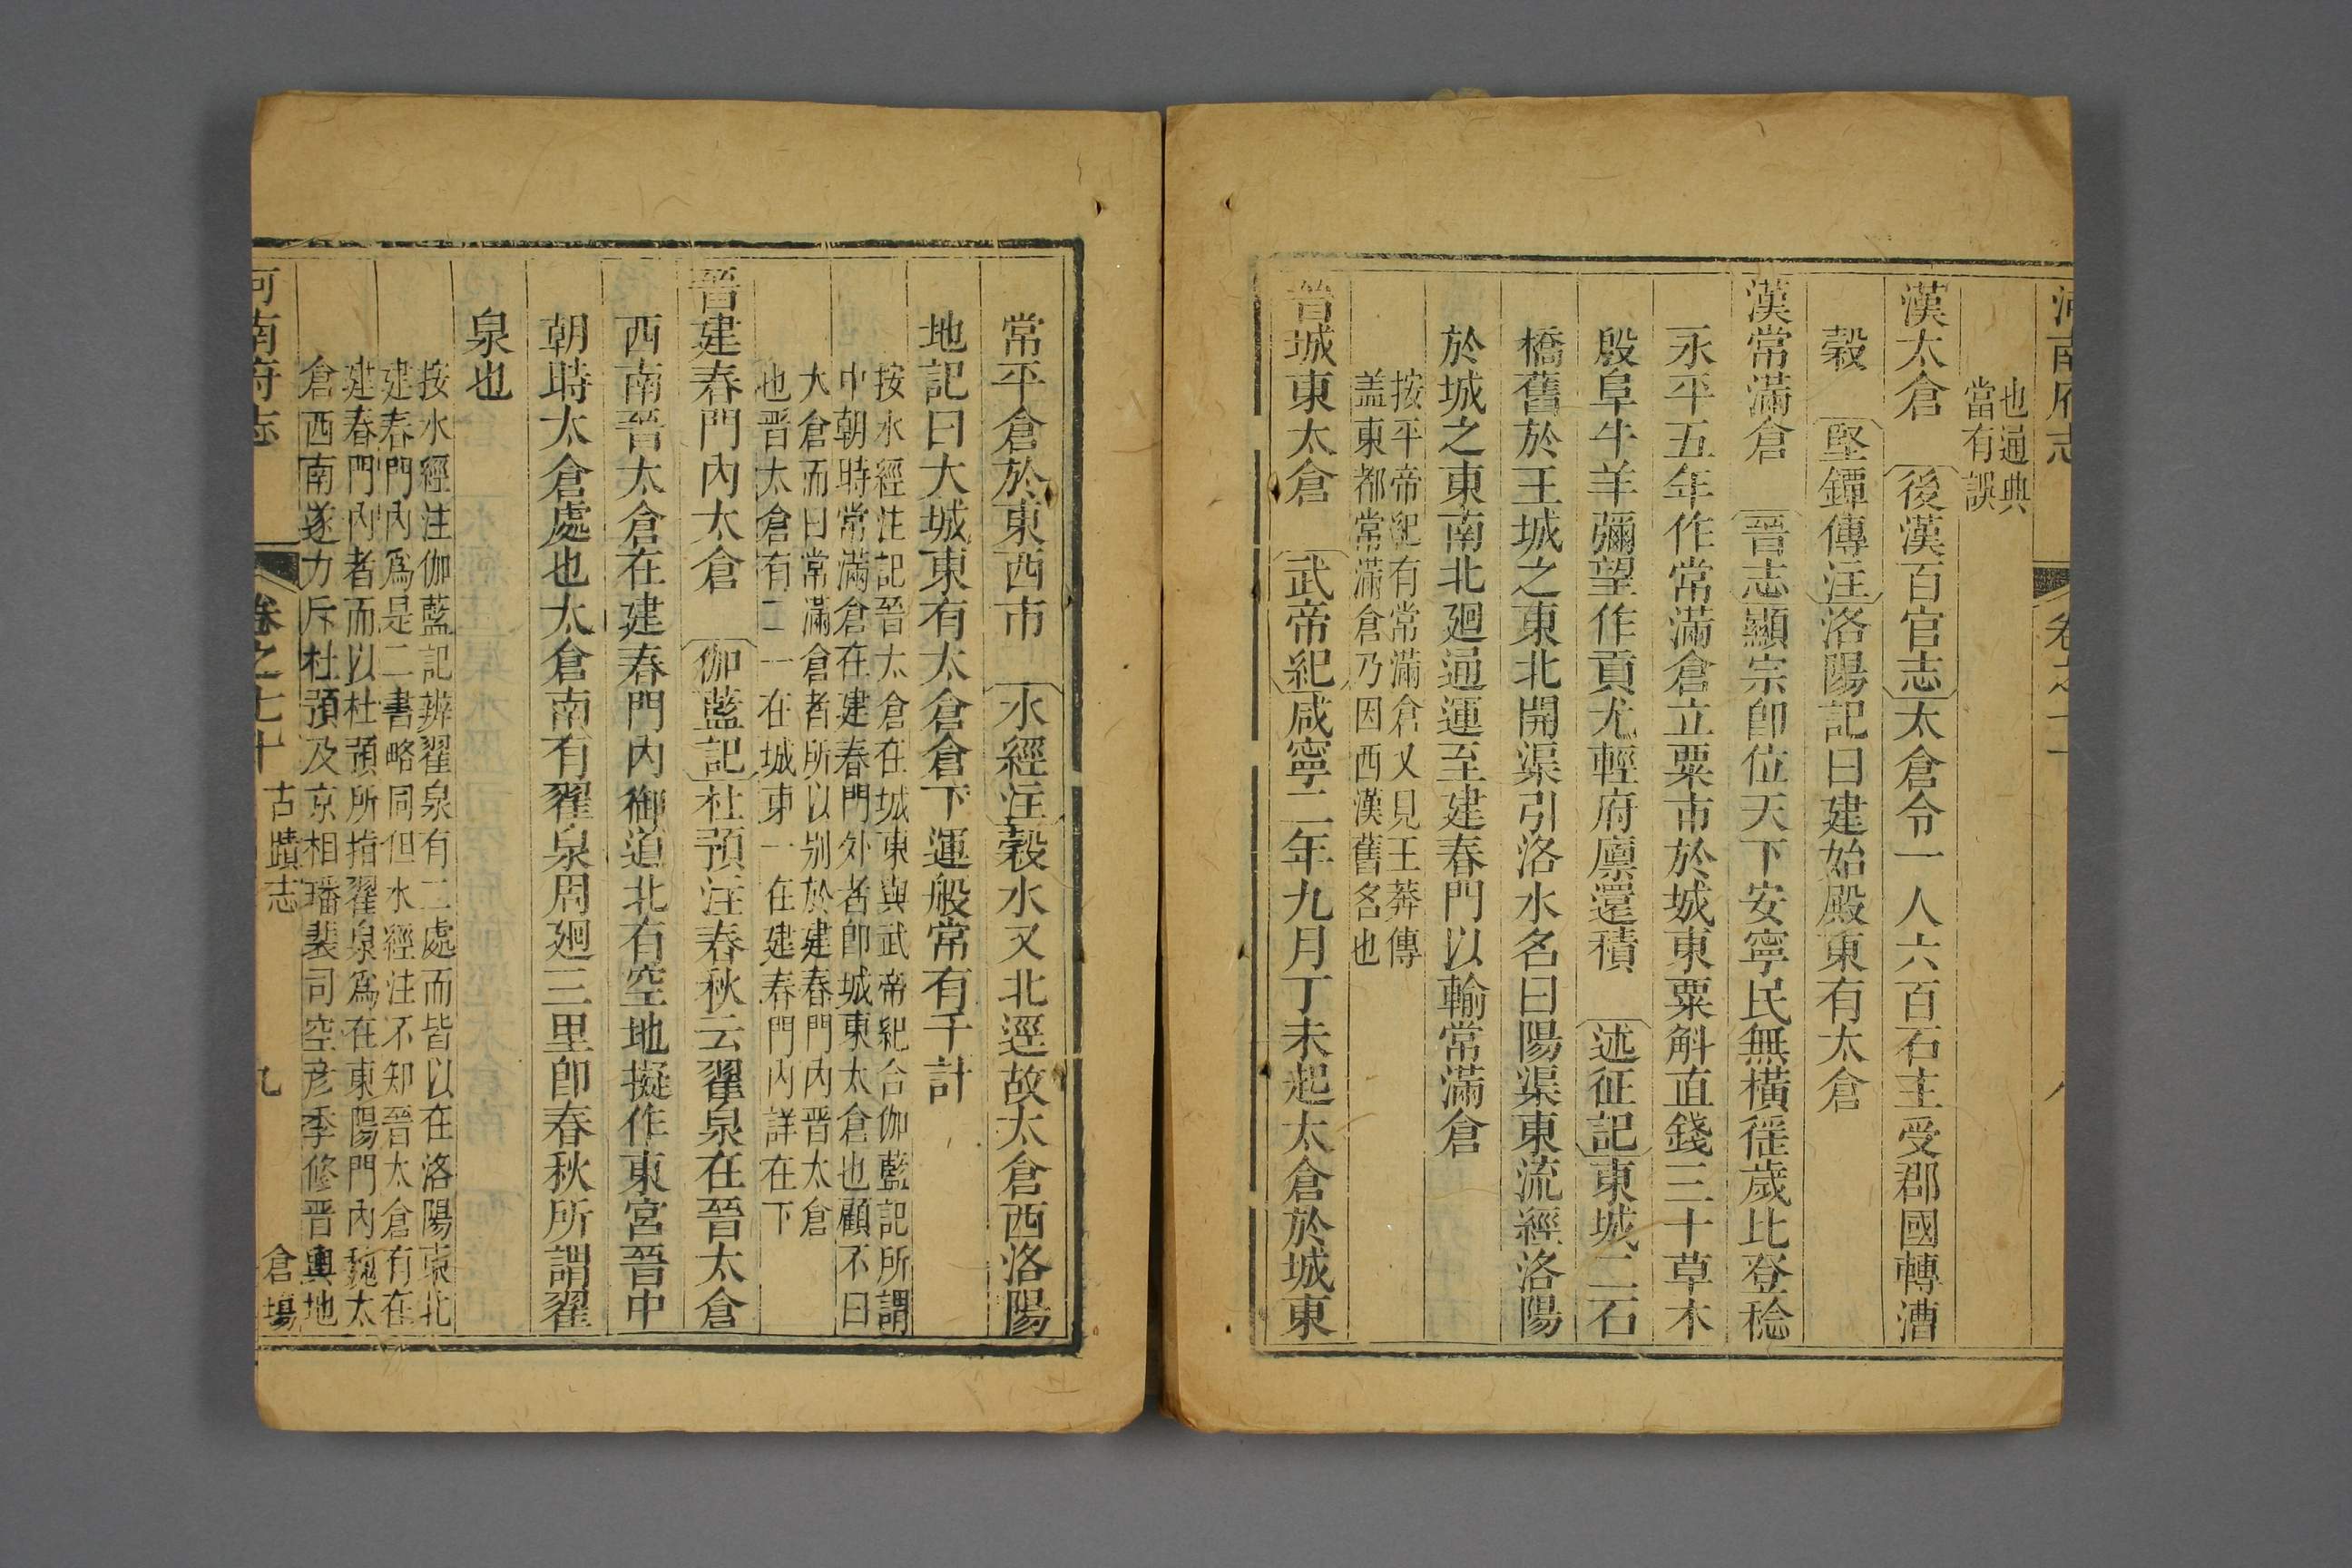 河南府志
卷之七十
八
也通典
當有誤
漢太倉　後漢百官志太倉令一人六百石主受郡國轉漕
穀　堅鐔傳注洛陽記曰建始殿東有太倉
漢常滿倉　晉志顯宗即位天下安寧民無橫徭歲比登稔
永平五年作常滿倉立粟市於城東粟斛直錢三十草木
殷阜牛羊彌望作貢尤輕府廩還積　述征記東城二石
橋舊於王城之東北開渠引洛水名曰陽渠東流經洛陽
於城之東南北廻通運至建春門以輸常滿倉
按平帝紀有常滿倉又見王莽傳
盖東都常滿倉乃因西漢舊名也
晉城東太倉　武帝紀咸寧二年九月丁未起太倉於城東
常平倉於東西市　水經注穀水又北逕故太倉西洛陽
地記曰大城東有太倉倉下運船常有千計
按水經注記晉太倉在城東與武帝紀合伽藍記所謂
中朝時常滿倉在建春門外者卽城東太倉也顧不曰
大倉而曰常滿倉者所以別於建春門內晉太倉
也晋太倉有二一在城東一在建春門內詳在下
晉建春門內太倉　伽藍記杜預注春秋云翟泉在晉太倉
西南晉太倉在建春門內御道北有空地擬作東宮晉中
朝時太倉處也太倉南有翟泉周廻三里卽春秋所謂翟
泉也
按水經注伽藍記辨翟泉有二處而皆以在洛陽東北
建春門內爲是二書略同但水經注不知晉太倉有在
建春門內者而以杜預所指翟泉爲在東陽門內魏太
倉西南遂力斥杜預及京相璠裴司空彥季修晋輿地
河南府志
卷之七十
古蹟志
九
倉場